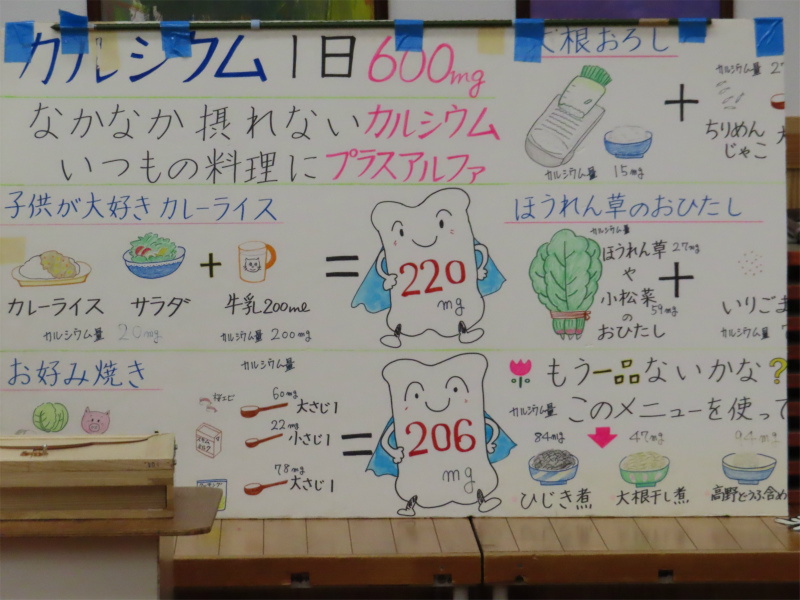 カルシウム1日600mg
なかなか摂れないカルシウム
いつもの料理にプラスアルファ
子供が大好きカレーライス
カレーライス
サラダ
+
牛乳200ml
カルシウム量 20mg
カルシウム量 200mg
=
220
mg
お好み焼き
カルシウム量
桜エビ
60mg
大さじ1
スキムミルク
22mg
小さじ1
78mg
大さじ1
=
206
mg
大根おろし
カルシウム量 15mg
+
カルシウム量
ちりめん
じゃこ
ほうれん草のおひたし
カルシウム量
ほうれん草 27mg
や
小松菜 59mg
の
おひたし
+
いりごま
カルシウム量
もう一品ないかな?
このメニューを使って
カルシウム量
84mg
ひじき煮
47mg
大根干し煮
94mg
高野どうふ含め